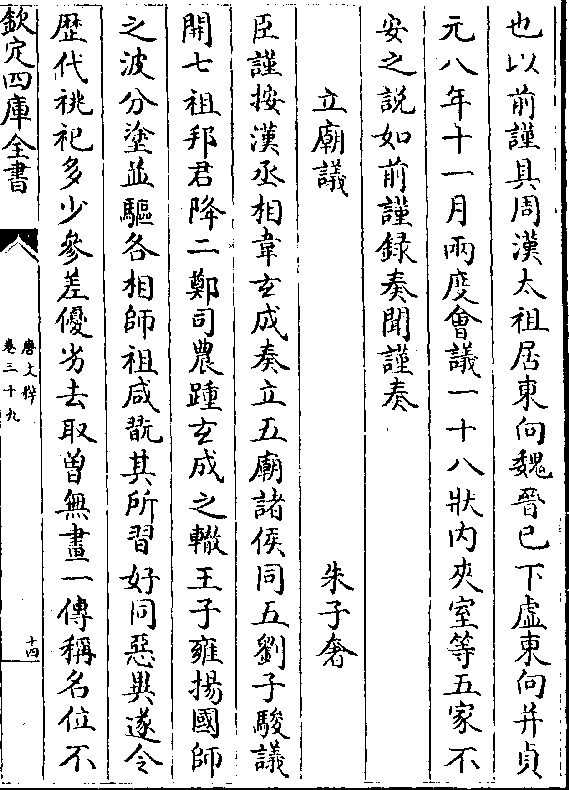 也以前謹具周漢太祖居東向魏晉已下虛東向并貞
元八年十一月兩度會議一十八狀内夾室等五家不
安之説如前謹録奏聞謹奏
立廟議 朱子奢
臣謹按漢丞相韋玄成奏立五廟諸侯同五劉子駿議
開七祖邦君降二鄭司農踵玄成之轍王子雍揚國師
之波分塗並驅各相師祖咸翫其所習好同惡異遂令
歴代祧祀多少參差優劣去取曽無畫一傳稱名位不
欽定四庫全書
唐文粹
卷三十九
十四